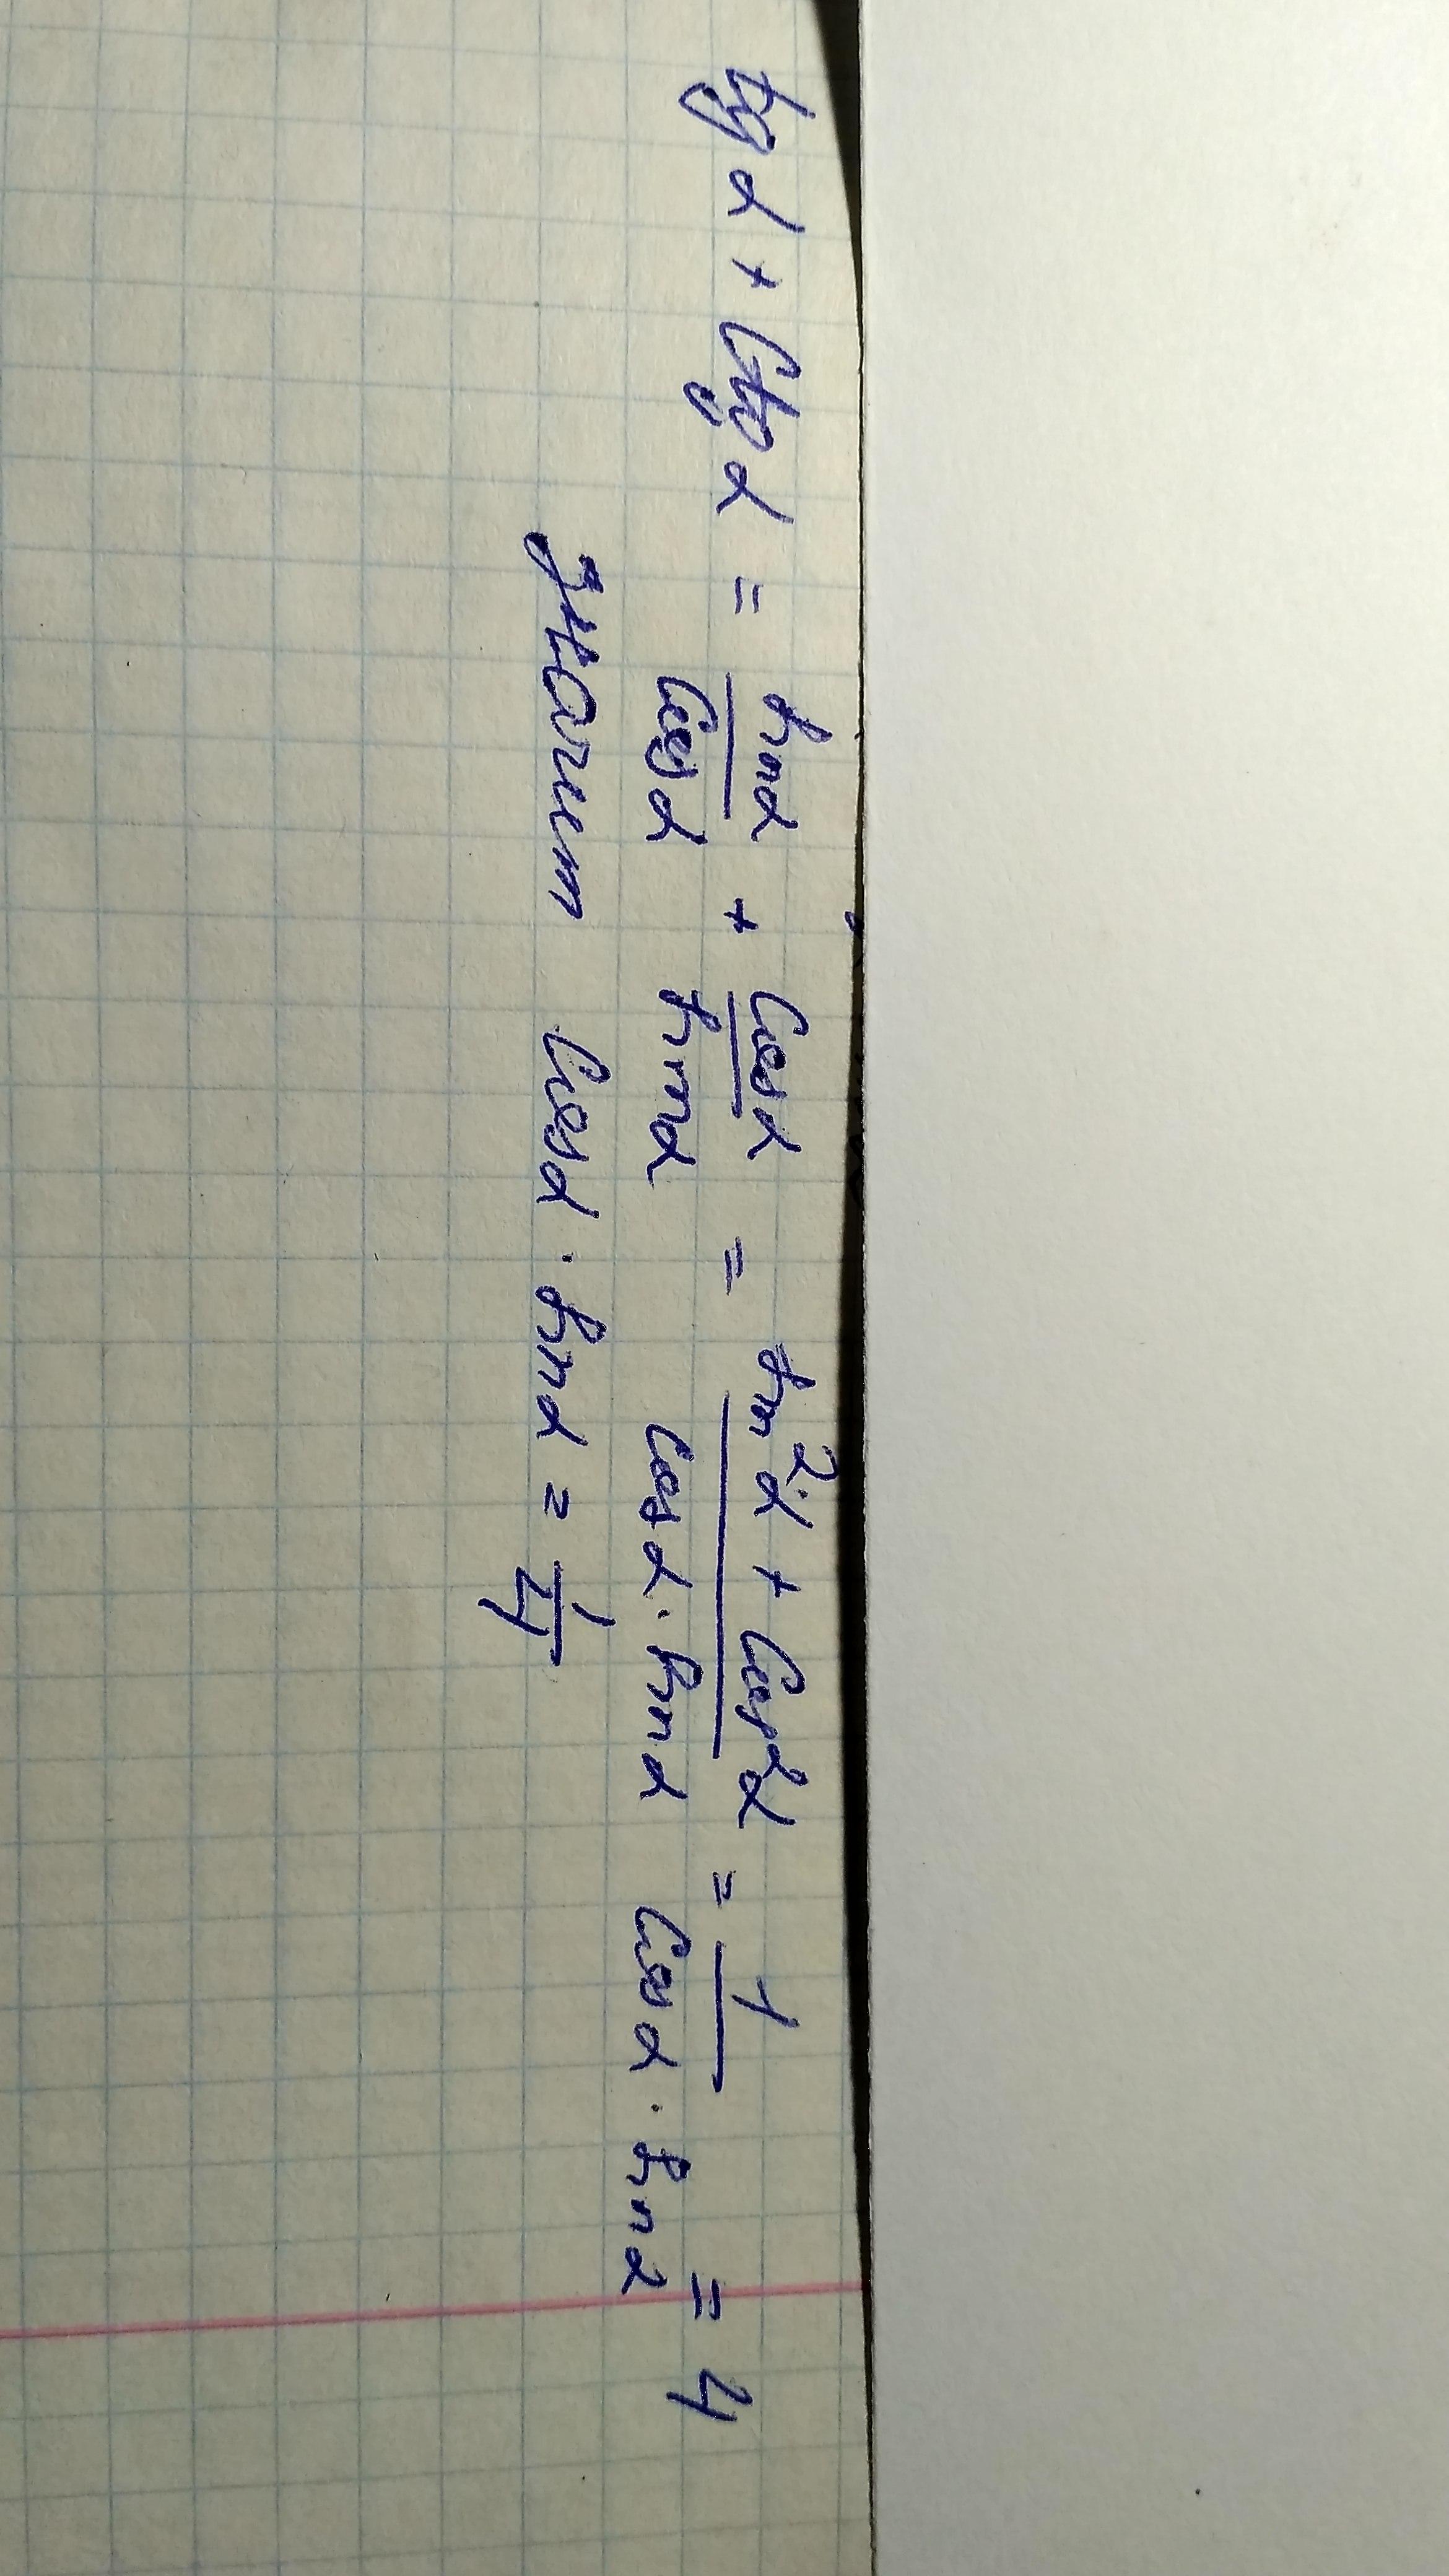 tg α + Ctg α = sin α / Cos α + Cos α / sin α = sin² α + Cos² α / Cos α · sin α = 1 / Cos α · sin α = 4
значит Cos α · sin α = 1/4